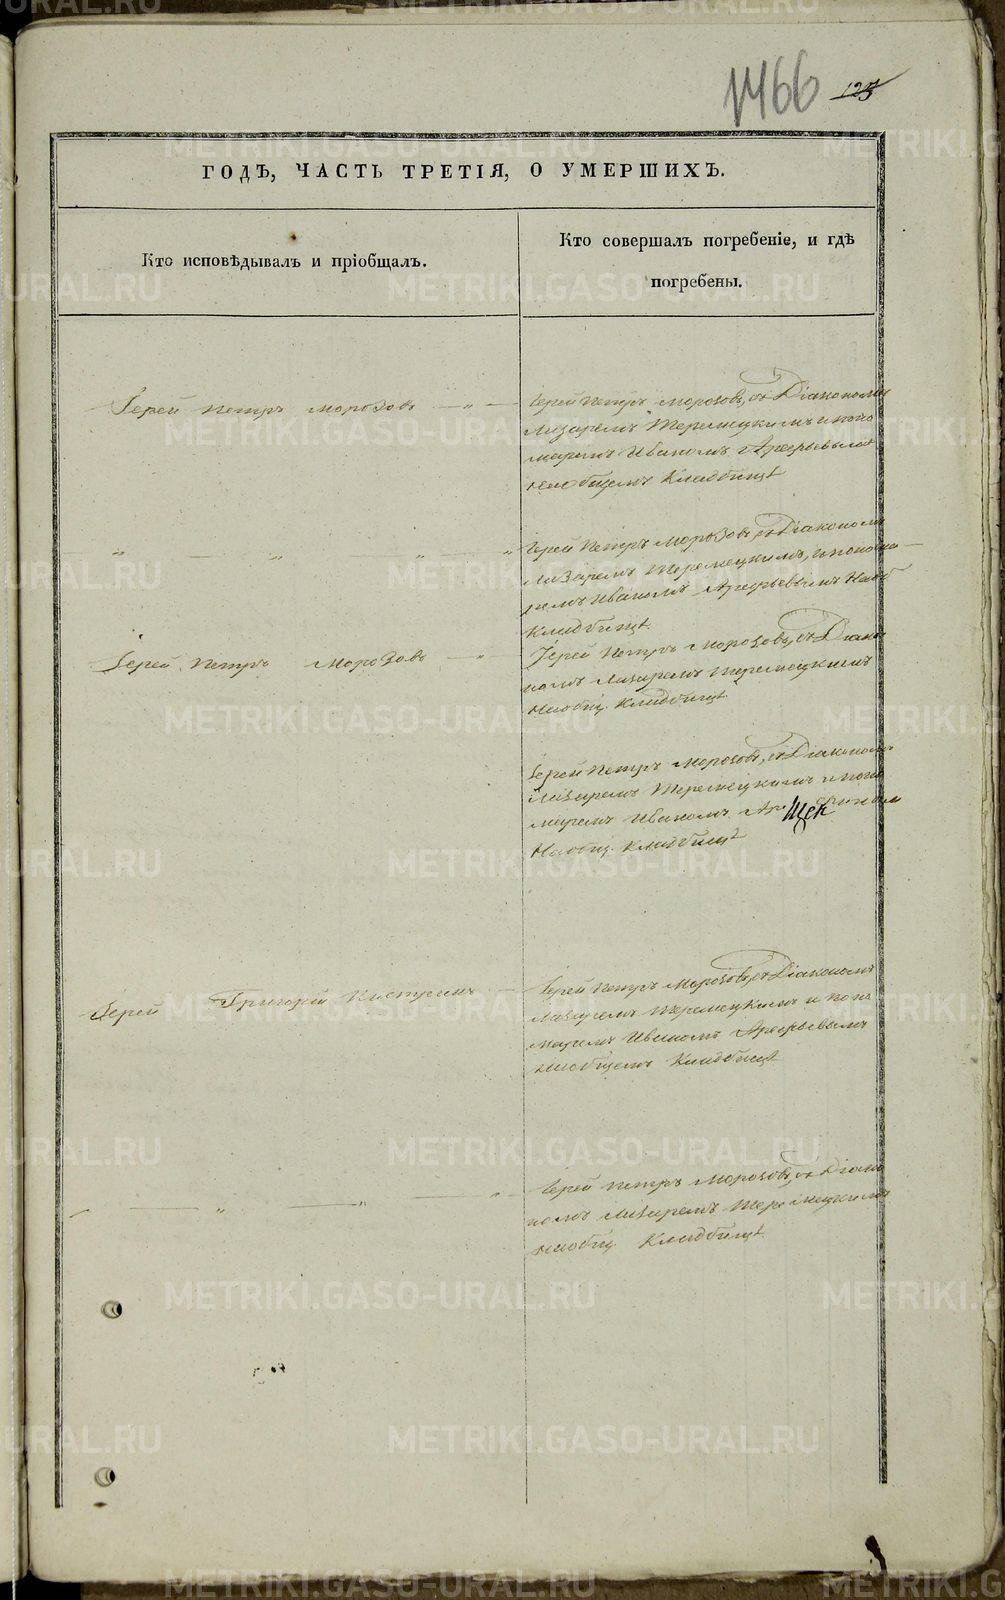 1466 125
ГОДЪ, ЧАСТЬ ТРЕТІЯ, О УМЕРШИХЪ.
Кто исповѣдывалъ и пріобщалъ.
Кто совершалъ погребеніе, и гдѣ
погребены.
Іерей Петръ Морозовъ — „ —
Іерей Петръ Морозовъ, съ Діакономъ
Лазаремъ Теремецкимъ и поно
маремъ Иваномъ Арефьевымъ
на общемъ Кладбищѣ
„ — „ — „ — „
Іерей Петръ Морозовъ съ Діакономъ
Лазаремъ Теремецкимъ, и понома—
ремъ Иваномъ Арефьевымъ На об
Кладбищѣ.
Іерей Петръ Морозовъ — „
Іерей Петръ Морозовъ, съ Діако
номъ Лазаремъ Теремецкимъ
на общ. Кладбищѣ
Іерей Петръ Морозовъ, съ Діакономъ
Лазаремъ Теремецкимъ и поно
маремъ Иваномъ
На общ. Кладбищѣ
Іерей Григорій
Іерей Петръ Морозовъ, съ Діакономъ
Лазаремъ Теремецкимъ и поно
маремъ Иваномъ Арефьевымъ
на общемъ Кладбищѣ
— „ — „ — „
Іерей Петръ Морозовъ, съ Діако
номъ Лазаремъ Теремецкимъ
на общ. Кладбищѣ.
METRIKI.GASO-URAL.RU